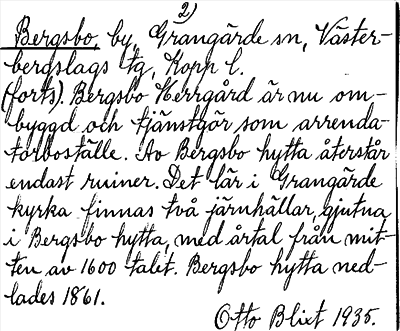 2)
Bergsbo, by, Grangärde sn, Väster-
bergslags tg, Kopp l.
(forts). Bergsbo Herrgård är nu om-
byggd och tjänstgör som arrenda-
torboställe. Av Bergsbo hytta återstår
endast ruiner. Det lär i Grangärde
kyrka finnas två järnhällar, gjutna
i Bergsbo hytta, med årtal från mit-
ten av 1600 talet. Bergsbo hytta ned-
lades 1861.
Otto Blixt 1935.